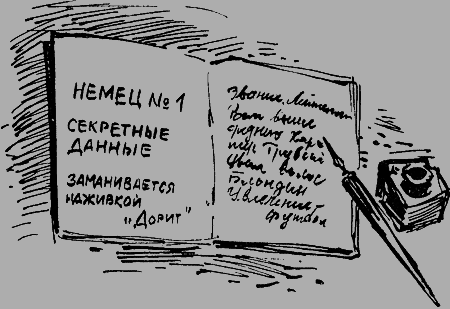 НЕМЕЦ № 1
СЕКРЕТНЫЕ
ДАННЫЕ
ЗАМАНИВАЕТСЯ
НАЖИВКОЙ
„ДОРИТ"
Звание. Лейтенант
Рост выше
среднего Хара-
ктер Грубый
Цвет волос
Блондин
Увлечения
футбол